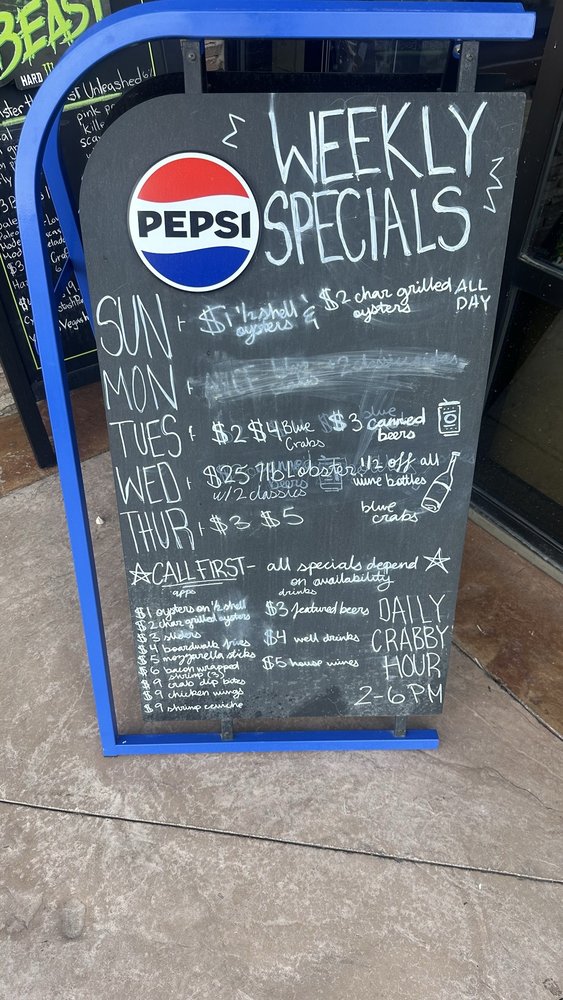 BEAST
HARD
Unleashed 6%
pink
WEEKLY
SPECIALS
PEPSI
SUN - $1 1/2 shell oysters & $2 char grilled oysters ALL DAY
MON -
TUES - $2 $4 Blue Crabs $3 canned beers
WED - $25 1lb Lobster w/ 2 classics 1/2 off all wine bottles
THUR - $3 $5 blue crabs
☆ CALL FIRST - all specials depend on availability ☆
apps
$1 oysters on 1/2 shell
$2 char grilled oysters
$3 sliders
$4 boardwalk fries
$5 mozzarella sticks
$6 bacon wrapped shrimp (3)
$9 crab dip bites
$9 chicken wings
$9 shrimp ceviche
drinks
$3 featured beers
$4 well drinks
$5 house wines
DAILY
CRABBY
HOUR
2-6PM